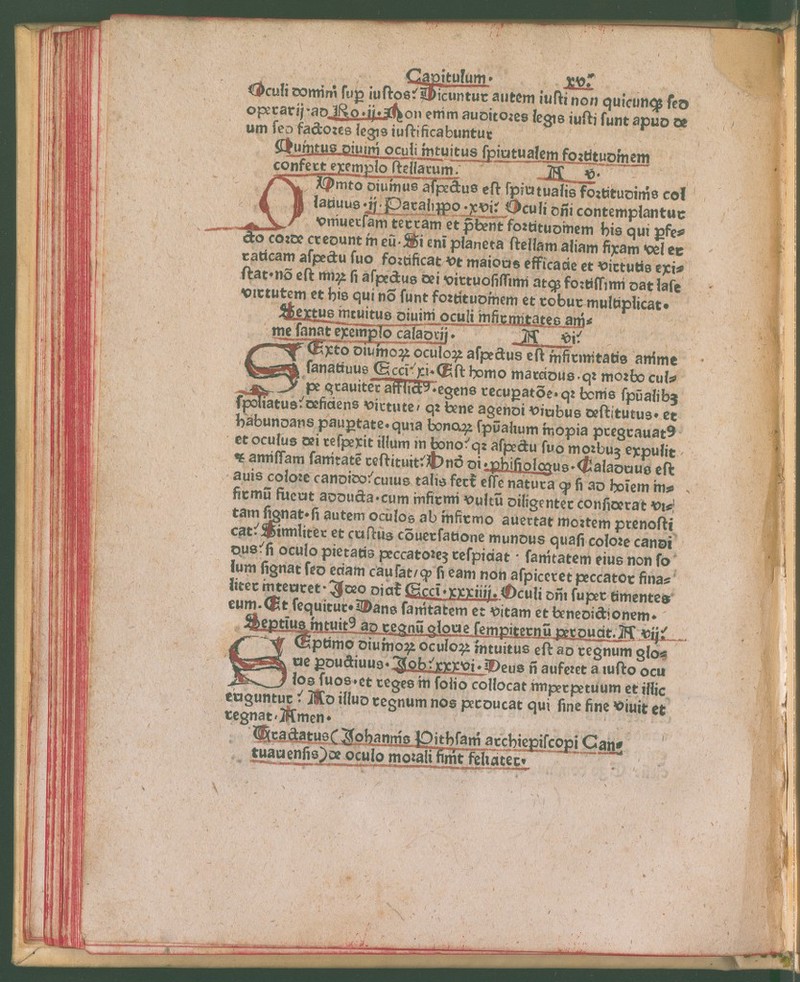 Capitulum. xv.
Oculi domini sup iustos: Dicuntur autem iusti non quicunqꝫ sed
operarij·ad Ro·ij·Non enim auditores legis iusti sunt apud de
um sed factores legis iustificabuntur
Quintus diuini oculi intuitus spiritualem fortitudinem
confert exemplo stellarum. A v.
QVinto diuinus aspectus est spiritualis fortitudinis col
latiuus·ij·Paralippo·xvi: Oculi dñi contemplantur
vniuersam terram et p̄bent fortitudinem his qui pfe⸗
cto corde credunt in eū·Si eni planeta stellam aliam fixam vel er
raticam aspectu suo fortificat vt maioris efficacie et virtutis exi⸗
stat·nō est mirꝝ si aspectus dei virtuosissimi atqꝫ fortissimi dat lase
virtutem et his qui nō sunt fortitudinem et robur multiplicat.
Sextus intuitus diuini oculi infirmitates ani⸗
me sanat exemplo caladrij. A vi:
SExto diuinoꝝ oculoꝝ aspectus est infirmitatis anime
sanatiuus Ecci:xi·Est homo marcidus·qꝛ morbo cul⸗
pe grauiter afflictꝰ·egens recupatōe·qꝛ bonis spūalibꝫ
spoliatus:deficiens virtute/ qꝛ bene agendi viribus destitutus· et
habundans paupertate·quia bonoꝝ spūalium inopia pregrauatꝰ
et oculus dei respexit illum in bono:qꝛ aspectu suo morbuꝫ expulit
⁊ amissam sanitatē restituit:Vnō di·phisiologus·Caladrius est
auis colore candido:cuius talis fert̄ esse natura ꝙ si ad hoīem in⸗
firmū fuerit adducta·cum infirmi vultū diligenter considerat vi⸗
tam signat·si autem oculos ab infirmo auertat mortem prenosti
cat:Similiter et christus cōuersatione mundus quasi colore candi
dus:si oculo pietatis peccatoreꝫ respiciat · sanitatem eius non so
lum signat sed eciam causat/ꝙ si eam non aspiceret peccator fina⸗
liter interiret·Ideo dicit̄ Ecci·xxxiiij. Oculi dñi super timentes
eum·Et sequitur·Dans sanitatem et vitam et benedictionem.
Septius intuitꝰ ad regnū glorie sempiternū perducit. A vij:
SEptimo diuinoꝝ oculoꝝ intuitus est ad regnum glo⸗
rie pductiuus·Job:xxxvi·Deus ñ auferet a iusto ocu
los suos·et reges in solio collocat imperpetuum et illic
eriguntur: Ad illud regnum nos perducat qui sine fine viuit et
regnat·Amen.
Tractatus(Johannis Pithsani archiepiscopi Can⸗
tuariensis)de oculo morali finit feliciter.